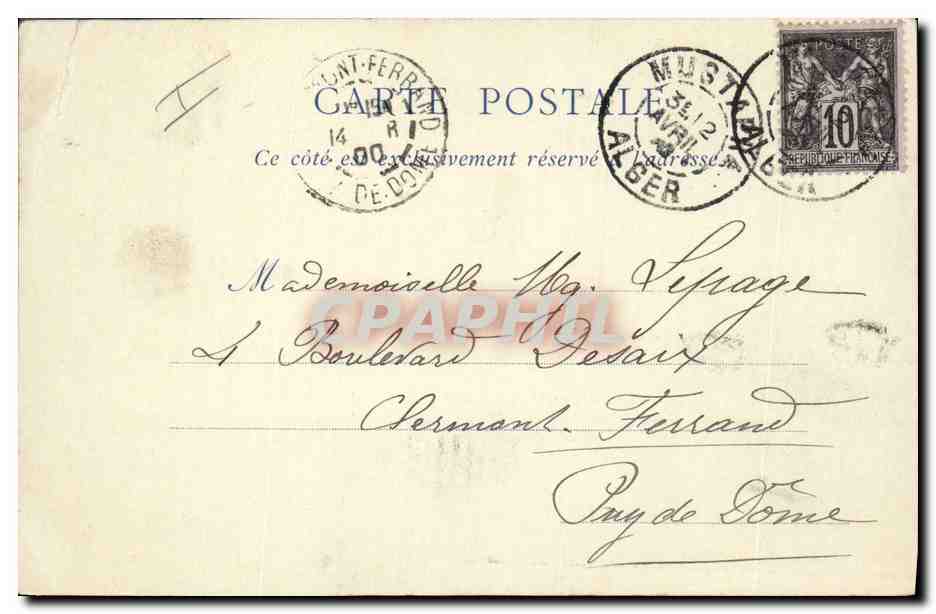 CARTE POSTALE
Ce côté est exclusivement réservé à l'adresse.
MONT-FERRAND
14
00
DE-DOME
MUSTA
3E 12
AVRIL
ALGER
POSTE
10
REPUBLIQUE FRANÇAISE
Mademoiselle Mg. Lepage
4 Boulevard Desaix
Clermont-Ferrand
Puy de Dôme
CPAPHIL